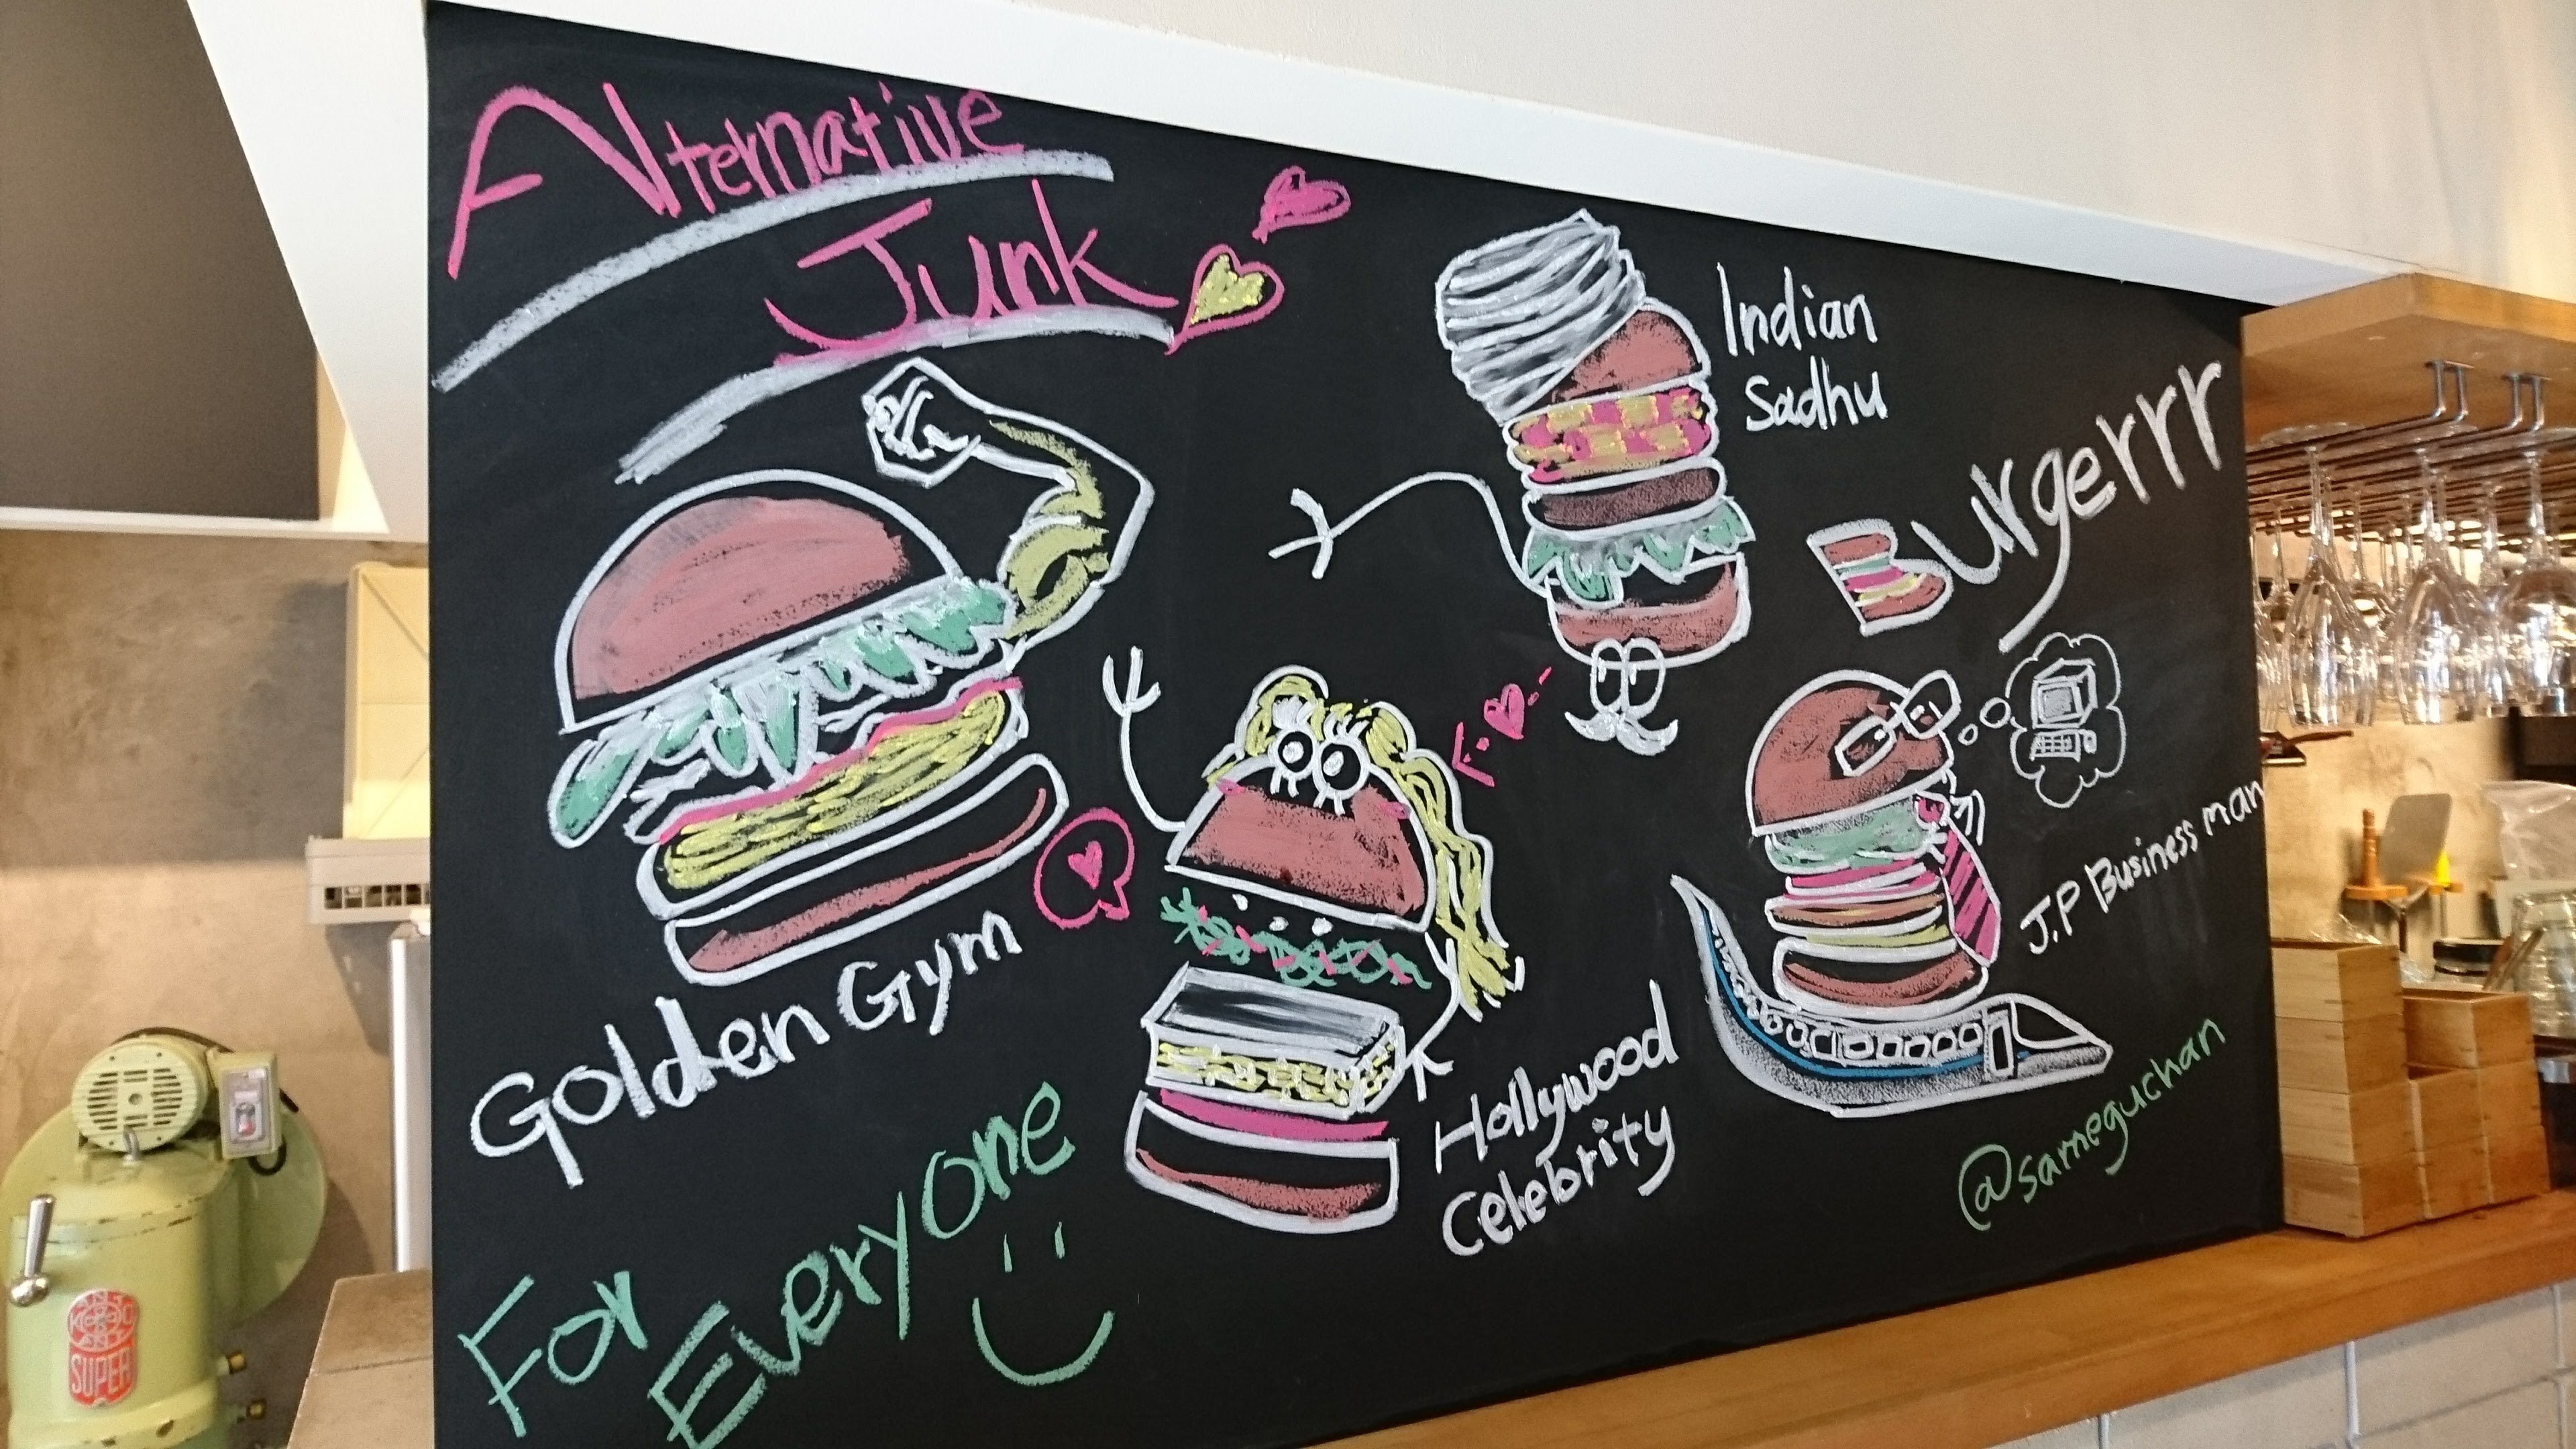 Alternative
Junk
Indian
Sadhu
Burgerrr
J.P Business man
Golden Gym
Hollywood
Celebrity
@sameguchan
For
Everyone
SUPER